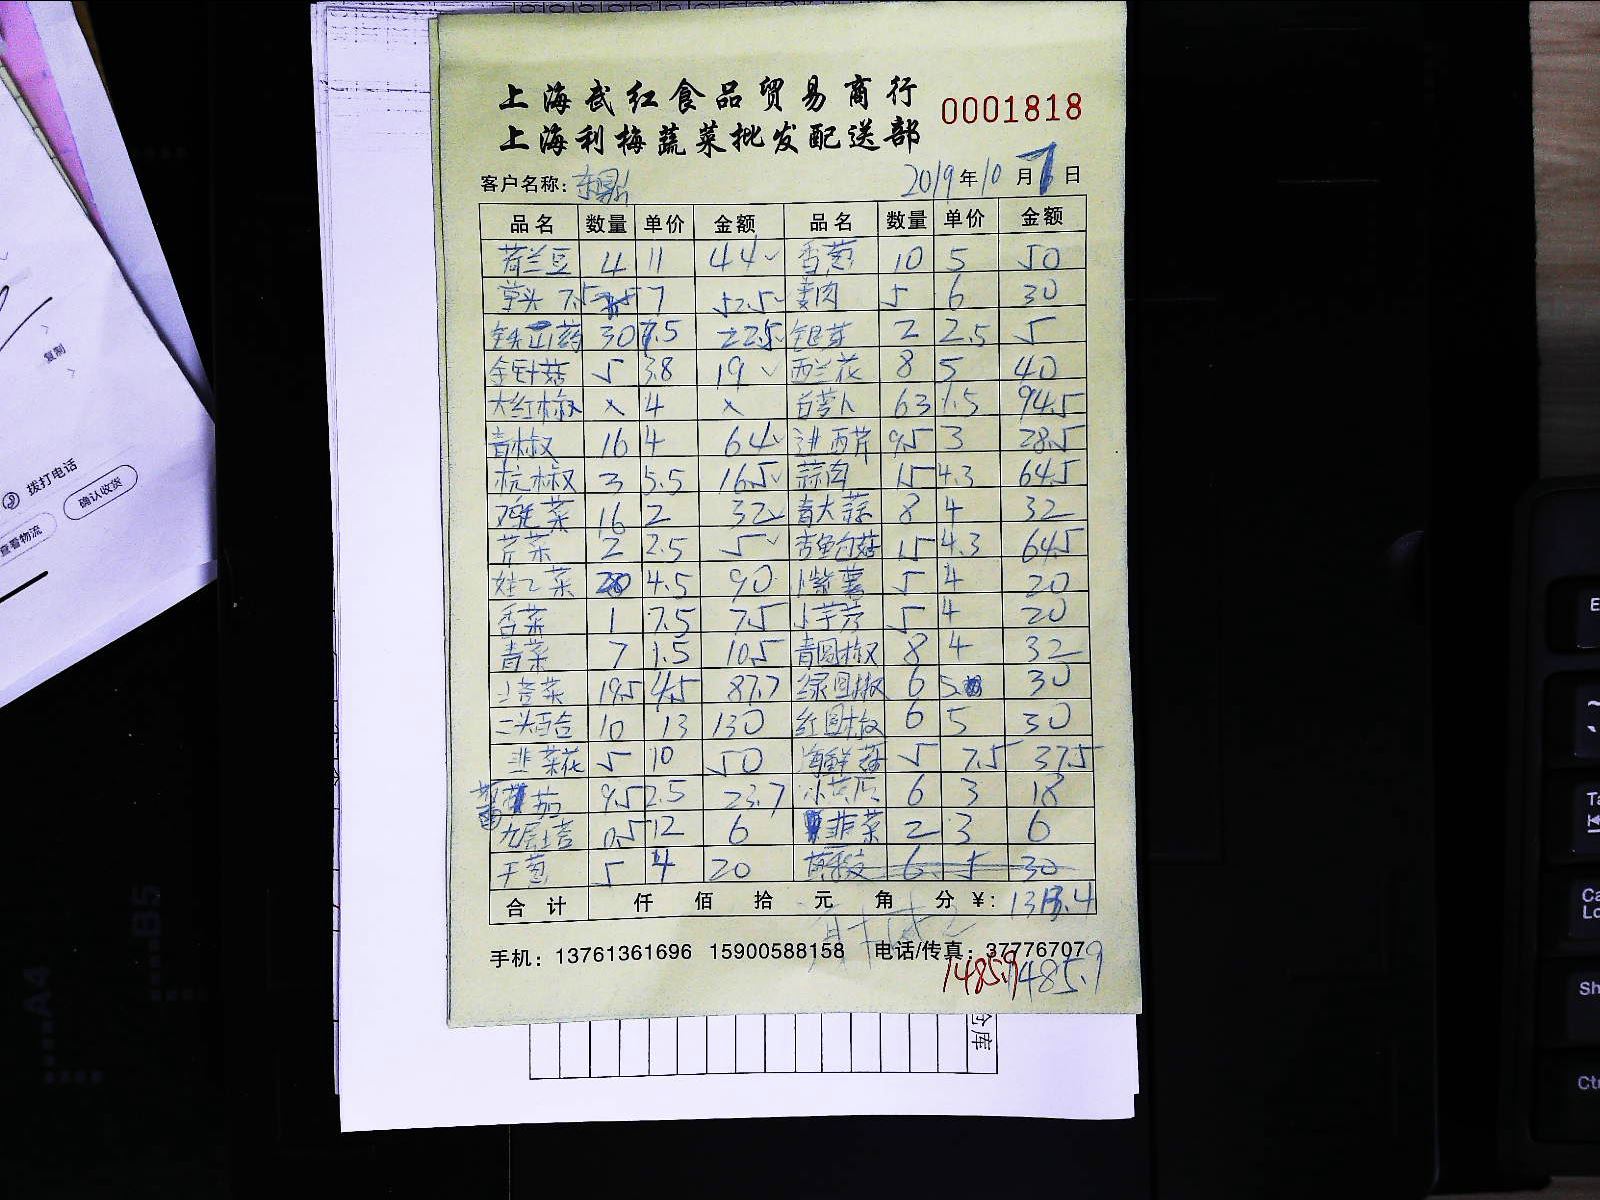 上海武红食品贸易商行
上海利梅蔬菜批发配送部
0001818
客户名称: 东鼎 2019年10月7日
品名 数量 单价 金额 品名 数量 单价 金额
荷兰豆 4 11 44 香葱 10 5 50
草头 7.5 7 52.5 姜肉 5 6 30
铁头山药 30 7.5 225 银芽 2 2.5 5
金针菇 5 3.8 19 西兰花 8 5 40
大红椒 x 4 x 白萝卜 63 1.5 94.5
青椒 16 4 64 进西芹 9.5 3 28.5
杭椒 3 5.5 16.5 蒜肉 15 4.3 64.5
鸡毛菜 16 2 32 青大蒜 8 4 32
芹菜 2 2.5 5 杏鲍菇 15 4.3 64.5
娃娃菜 20 4.5 90 小紫薯 5 4 20
香菜 1 7.5 7.5 小芋艿 5 4 20
青菜 7 1.5 10.5 青圆椒 8 4 32
19.5 4.5 87.7 绿圆椒 6 5 30
二头百合 10 13 130 红圆椒 6 5 30
韭菜花 5 10 50 海鲜菇 5 7.5 37.5
番茄 9.5 2.5 23.7 小黄瓜 6 3 18
九层塔 0.5 12 6 韭菜 2 3 6
干葱 5 4 20 6 5 30
合计 仟 佰 拾 元 角 分 ¥:
手机: 13761361696 15900588158 电话/传真: 37776707
1485.9 1485.9
拨打电话
确认收货
查看物流
复制
仓库